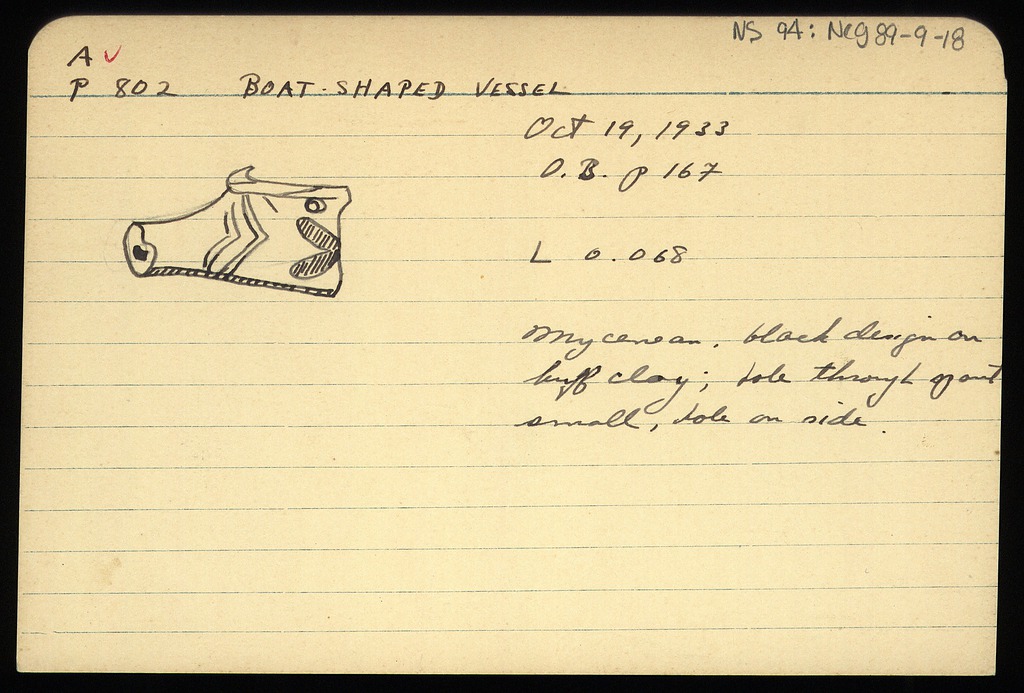 NS 94: Neg 89-9-18
A ✓
P 802 BOAT-SHAPED VESSEL
Oct 19, 1933
O.B. p 167
L 0.068
Mycenean. black design on
buff clay; hole through spout
small, hole on side.